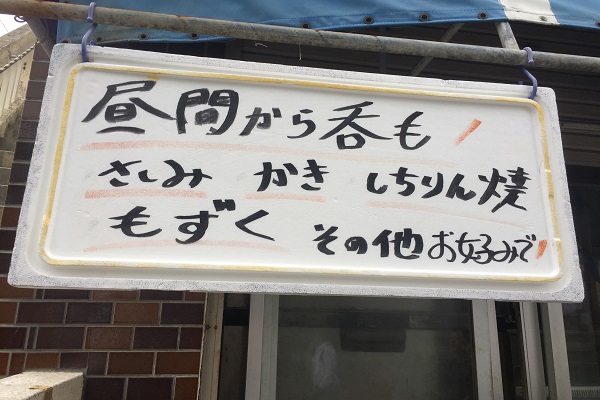 昼間から呑も!
さしみ かき しちりん焼
もずく その他お好みで!